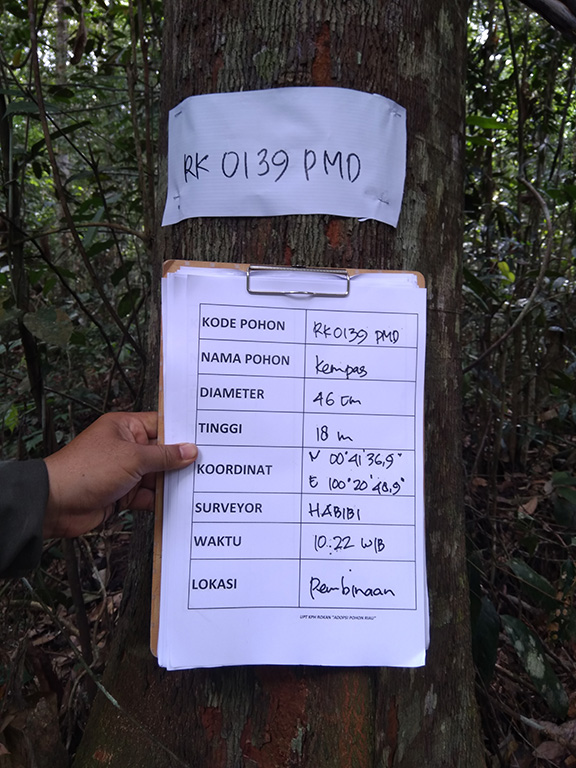 RK 0139 PMD
KODE POHON RK0139 PMD
NAMA POHON Kempas
DIAMETER 46 cm
TINGGI 18 m
KOORDINAT N 00°41'36,9"
E 100°20'48,9"
SURVEYOR HABIBI
WAKTU 10:22 WIB
LOKASI Pembinaan
UPT KPH ROKAN "ADOPSI POHON RIAU"